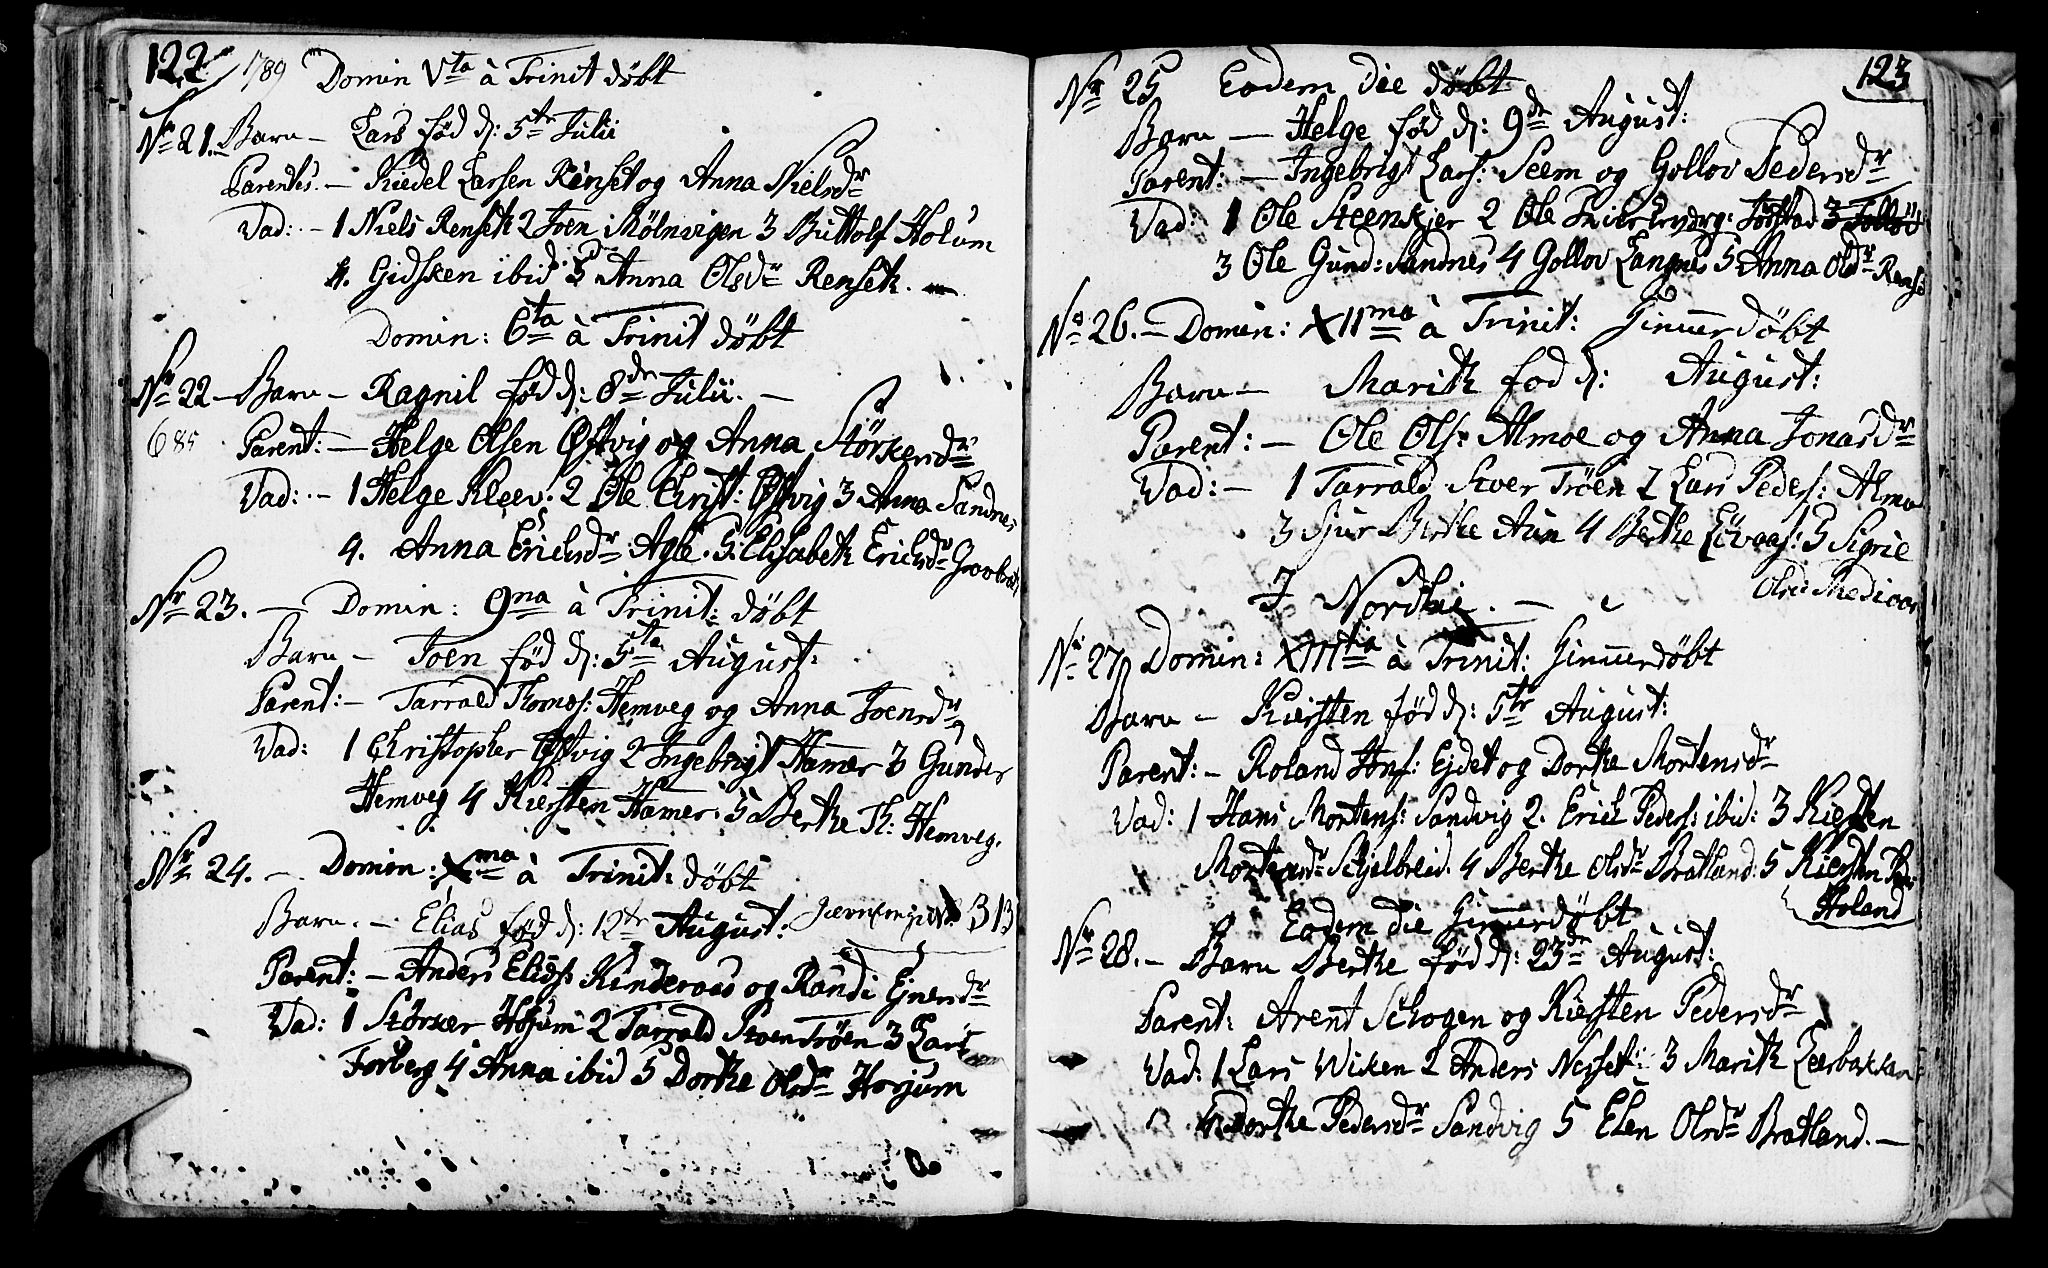 122 1789 Domin Vta à Trinit döbt
No 21. Barn – Lars fød d: 5te Julii
Parentes. – Kiedel Larsen Renset og Anna Nielsdr
Vad: – 1 Niels Renseth 2 Joen Mölnvigen 3 Buttolf Holum
4. Gidsken ibid: 5 Anna Olsdr Renseth.
Domin: 6ta à Trinit döbt
Nr 22 – Barn – Ragnil fød d: 8de Julii. –
685 Parent: – Helge Olsen Østvig og Anna Störkersdr
Vad: – 1 Helge Kleev: 2 Ole Christ: Østvig 3 Anna Sandnes
4. Anna Erichsdr Agle. 5. Elisabeth Erichsdr
Nr 23. – Domin: 9na à Trinit: döbt
Barn – Joen fød d: 5te August:
Parent: – Tarrald Thomas: Hemveg og Anna Joensdr
Vad: 1 Christopher Østvig 2 Ingebrigt Hamer 3 Gunder
Hemveg 4 Kiersten Hamer: 5 Berthe Th: Hemveg.
Nr 24. – Domin: Xma à Trinit: döbt
Barn. – Elias fød d: 12te August: 313
Parent: – Anders Eliass: Kinderaas og Randi Ejnersdr
Vad: 1 Störker Hojum 2 Tarrald Stoer Tröen 3 Lars
Forberg 4 Anna ibid 5 Dorthe Olsdr Hojum
123
Nr 25 Eodem die döbt
Barn – Helge fød d: 9de August:
Parent: – Ingebrigt Lars: Seem og Gollov Pedersdr
Vad: 1 Ole Steenkjer 2 Ole Jörstad 3
3 Ole Gund: Sandnes 4 Gollov Langnes 5 Anna Olsdr Rense
No 26. – Domin: XIIma à Trinit: Giemerdöbt
Barn – Marith fød d: August:
Parent: – Ole Ols: Almoe og Anna Jonasdr
Vad: – 1 Tarrald Stoer Tröen 2 Lars Peders: Almo
3 Sjur Berthe Aun 4 Berthe Lövaas: 5 Sigrie
Olsd: Mediaas
I Nordlie. –
Nr 27 Domin: XIIItia à Trinit: Giemerdöbt
Barn – Kiersten fød d: 5te August:
Parent: – Roland Jons: Ejdet og Dorthe Mortensdr
Vad: 1 Hans Mortens: Sandvig 2. Erich Peders: ibid: 3 Kiersten
Mortensdr Schjelbreid. 4 Berthe Olsdr Bratland: 5 Kiersten
Holand
Eodem die Giemerdöbt
Nr 28. – Barn Berthe fød d: 23de August:
Parent: Arent Schogen og Kiersten Pedersdr
Vad: 1 Lars Wiken 2 Anders Nesset: 3 Marith Leerbakken
4 Dorthe Pedersdr Sandvig 5 Elen Olsdr Bratland. –